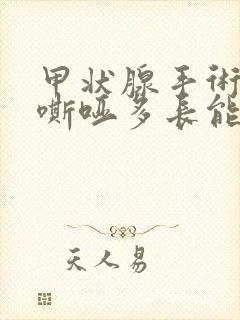 甲状腺手术
嘶哑多长能
天人易